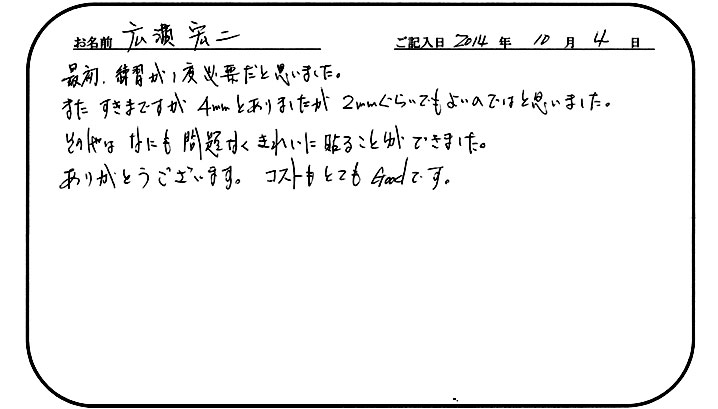 お名前 広瀬 宏二 ご記入日 2014 年 10 月 4 日
最初、練習が1度必要だと思いました。
また すきまですが 4mmとありましたが 2mmぐらいでもよいのではと思いました。
その他は なにも 問題なく きれいに 貼ることが できました。
ありがとうございます。 コストもとても Goodです。